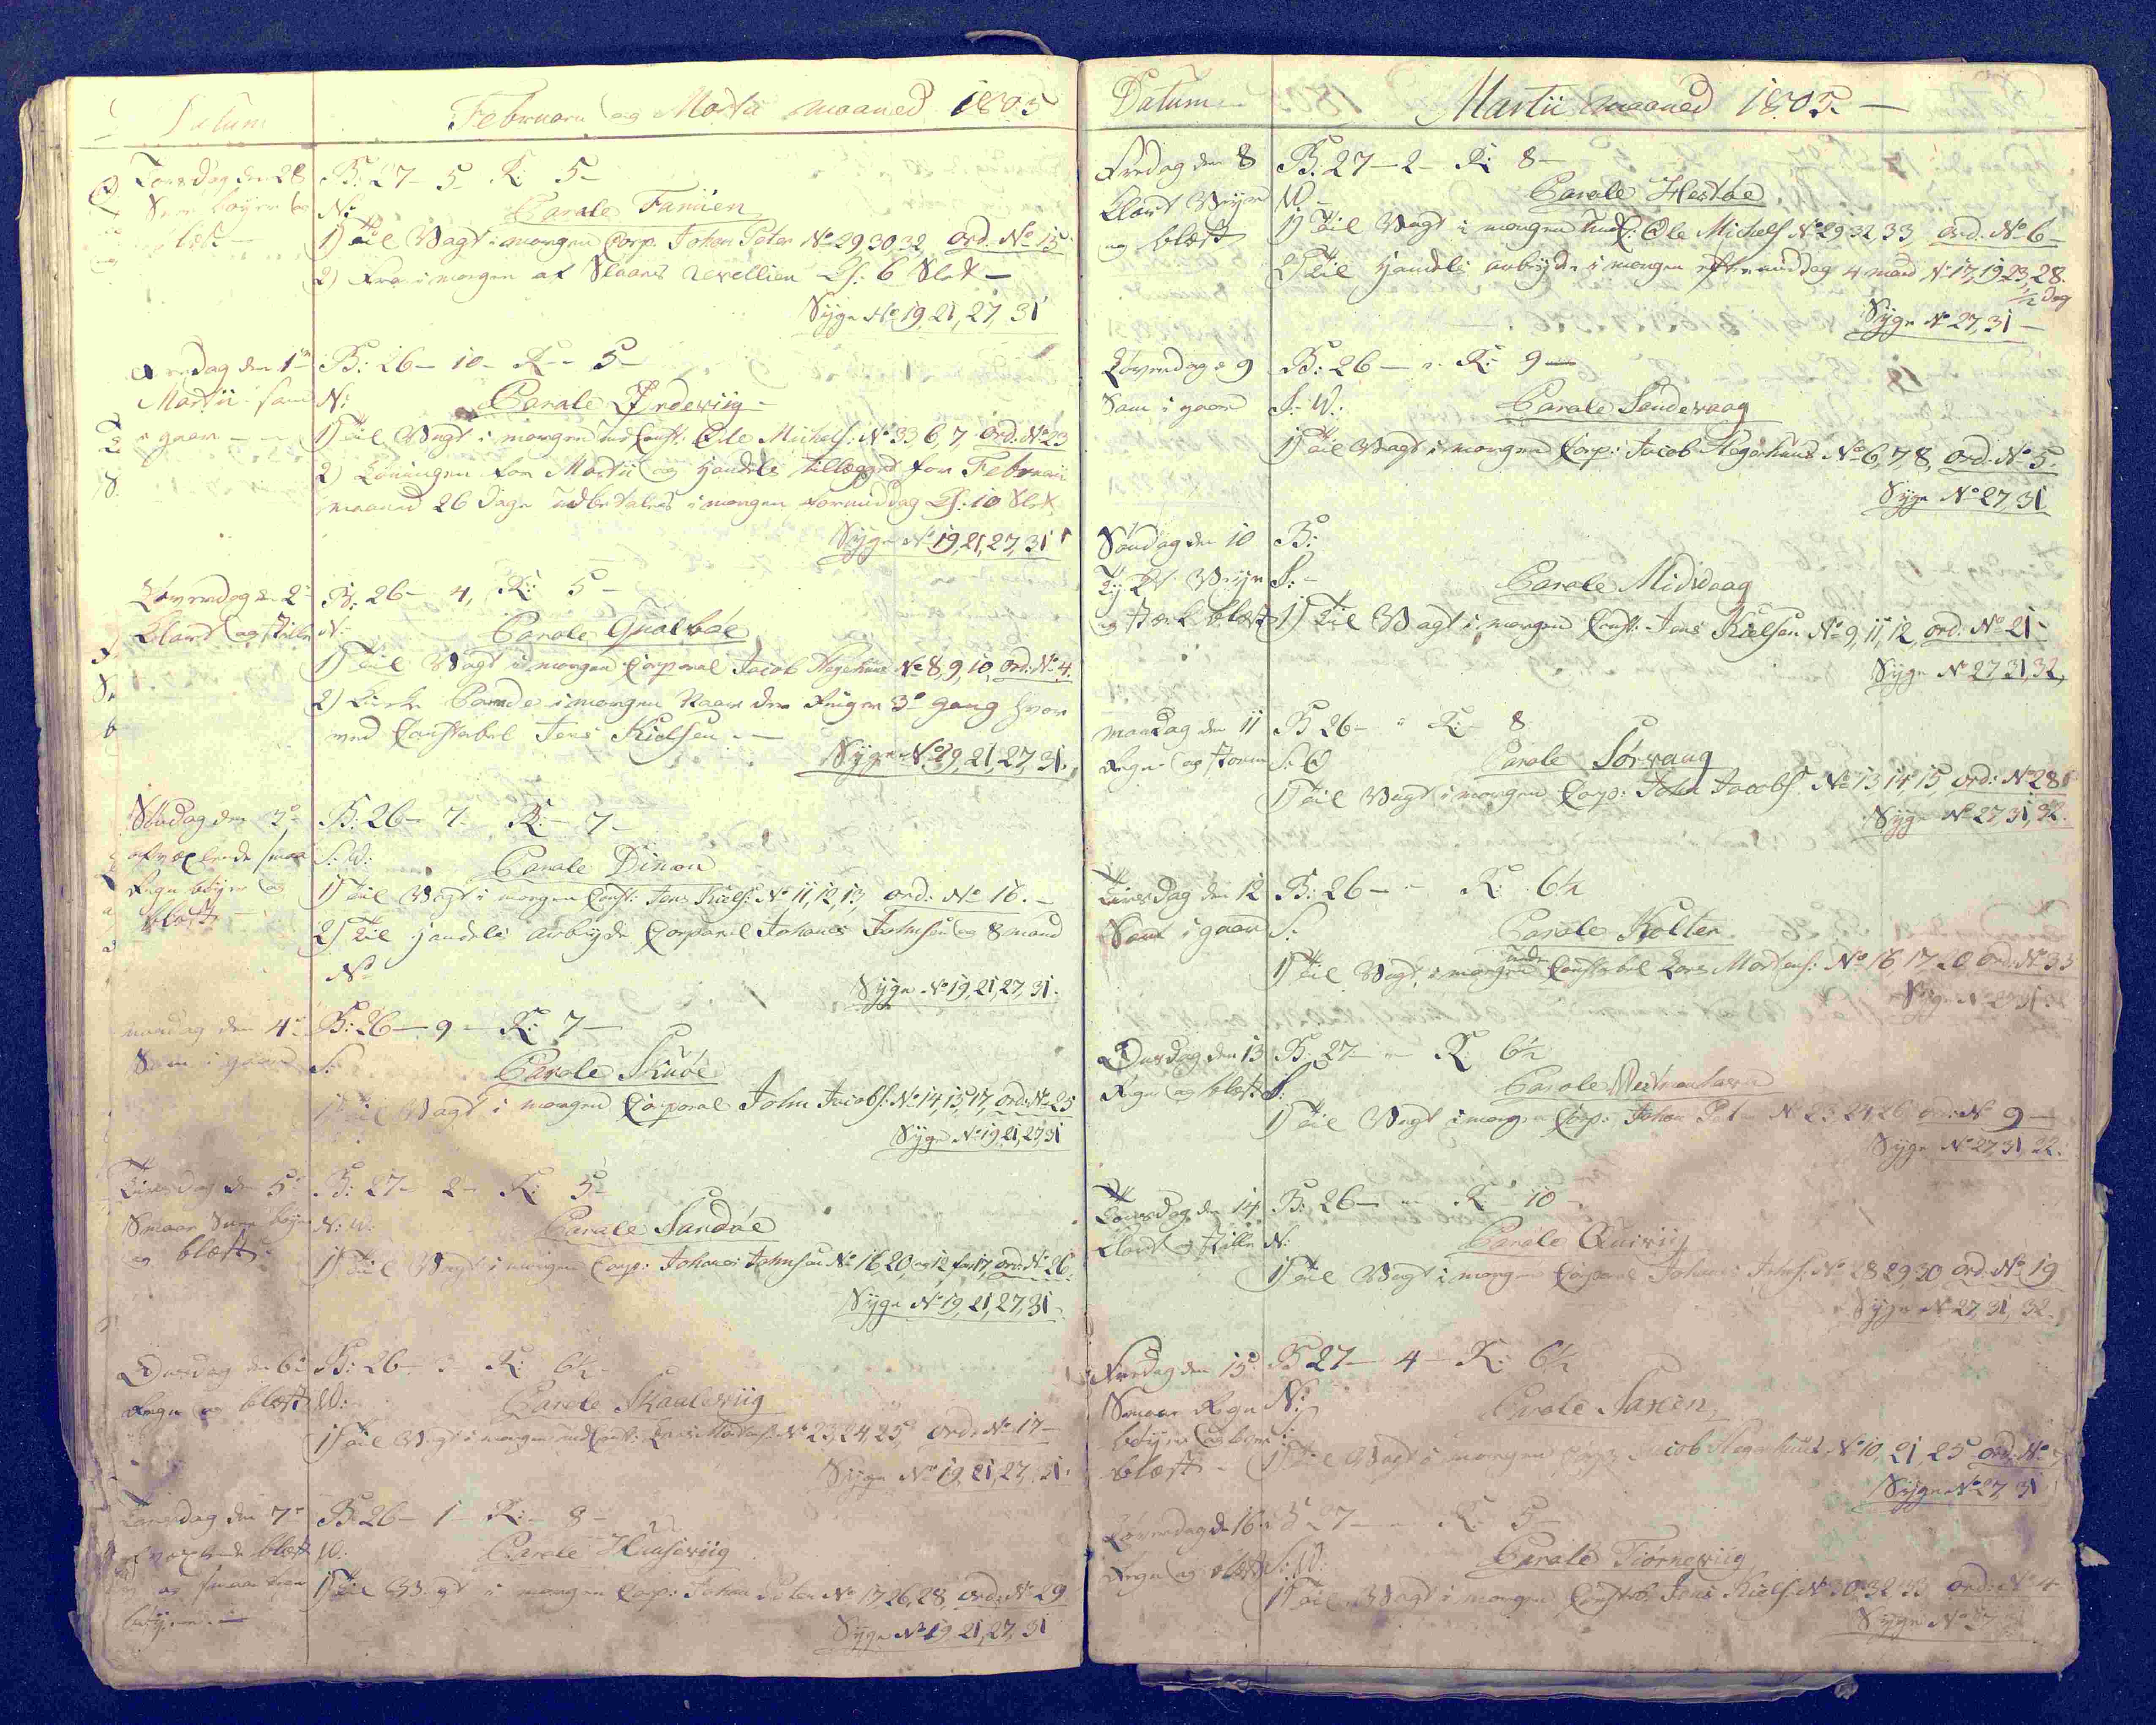 Datum
Februarii og Martii maaned 1805
Torsdag den 28
Snee bøyer og
blæst
B: 27 - 5 - R: 5 -
N:
Parole Famien
1) Til Vagt i morgen Corp. Johan Peter No 29 30 32, ord. No 15
2) Fra i morgen af Slaaes Revellien Kl. 6 Slet -
Syge No 19, 21, 27, 31
Fredag den 1te
Martii som
i gaar -
B: 26 - 10 - R - 5 -
N:
Parole Frdeviig
1) Til Vagt i morgen und Const: Ole Michels: No 33 6, 7 ord. No 23
2) Lønningen for Martii og Handels tillægget for Februarii
maaned 26 Dage udbetales i morgen formiddag Kl. 10 Slet
Syge No 19, 21, 27, 31
Løverdag d 2
Klart og stille
B: 26 - 4, R: 5 -
N:
Parole Qualbøe
1) Til Vagt i morgen Corporal Jacob Hegehuus No 8, 9, 10, ord. No 4.
2) Kirke Parade i morgen Naar der Ringer 3de gang hvor
ved Constabel Jens Kielsen -
Syge No 19, 21, 27, 31.
Søndag den 3
afvexlende smaa
Regn bøyer og
blæst
B: 26 - 7 - R: - 7 -
S: W:
Parole Dimon
1) Til Vagt i morgen Const: Jens Kiels: No 11, 12, 13, ord. No 16. -
2) Til Handels arbeyde Corporal Johanes Johnsen og 8 mand
No
Syge No 19, 21, 27, 31.
Mandag den 4
Som i gaar
B: 26 - 9 - R: 7 -
S:
Parole Skuøe
1) Til Vagt i morgen Corporal John Jacobs: No 14, 15, 17, ord. No 25
Syge No 19, 21, 27, 31
Tirsdag den 5
Smaae Snee bøyer
og blæst
B: 27 - 2 - R: 5 -
N: W:
Parole Sandøe
1) Til Vagt i morgen Corp: Johanes Johnsen No 16, 20, og 12 for 17, ord. No 26.
Syge No 19, 21, 27, 31 -
Onsdag den 6
Regn og blæst
B: 26 - R: 6½
W:
Parole Skaaleviig
1) Til Vagt i morgen und Const: Lars Mortens: No 23, 24, 25, ord. No 17 -
Syge No 19, 21, 27, 31.
Torsdag den 7
afvexlende blæst
og smaae Snee
bøyer
B: 26 - 1 - R: - 8 -
W:
Parole Huuseviig
1) Til Vagt i morgen Corp: Johan Peter No 17 26, 28, ord. No 29
Syge No 19 21, 27, 31
Datum
Martii maaned 1805 -
Fredag den 8
Klart Veyr
og blæst
B: 27 - 2 - R: 8 -
W -
Parole Hestøe
1) Til Vagt i morgen und: Ole Michels. No 29 32, 33, ord. No 6 -
2) Til Handels arbeyde i morgen eftermiddag 4 mand No 17, 19 23, 28.
½ dag
Syge No 27, 31 -
Løverdag d 9
Som i gaar
B: 26 - R: 9 -
S: W:
Parole Sandevaag
1) Til Vagt i morgen Corp: Jacob Hegehuus No 6, 7 8, ord. No 5.
Syge No 27, 31
Søndag den 10
Tyk Veyr
og stærk blæst
B:
S: -
Parole Midvaag
1) Til Vagt i morgen Const: Jens Kielsen No 9, 11, 12, ord. No 21 -
Syge No 27, 31, 32,
Mandag den 11
Regn og storm
B 26 - R: - 8
S: O
Parole Sørvaag
1) Til Vagt i morgen Corp: John Jacobs No 13 14, 15 ord: No 28
Syge No 27, 31, 32.
Tirsdag den 12
Som i gaar
B: 26 - R: 6½
S.
Parole Kolter
und
1) Til Vagt i morgen Constabel Lars Mortens: No 16, 17, 20, ord. No 33
Syge No 27 31
Onsdag den 13
Regn og blæst
B: 27 - R: 6½
S:
Parole Vestmanhavn
1) Til Vagt i morgen Corp: Johan Peter No 23 24 26 ord: No 9 -
Syge No 27, 31, 22.
Torsdag den 14
Klart og stille
B: 26 - R: 10 -
N:
Parole Quiviig
1) Til Vagt i morgen Corporal Johanes Johns: No 28 29, 30 ord. No 19
Syge No 27, 31, 32.
Fredag den 15
Smaae Regn
bøyer og
blæst -
B 27 - 4 - R: 6½
N:
Parole Saxen
1) Til Vagt i morgen Corp: Jacob Hegehuus No 10, 21, 25 ord. No
Syge No 27, 31
Løverdag d 16
Regn og blæst
B 27 - R: 5 -
S: W:
Parole Tiørneviig
1) Til Vagt i morgen Constab. Jens Kiels: No 30 32 33 ord: No 4
Syge No 27